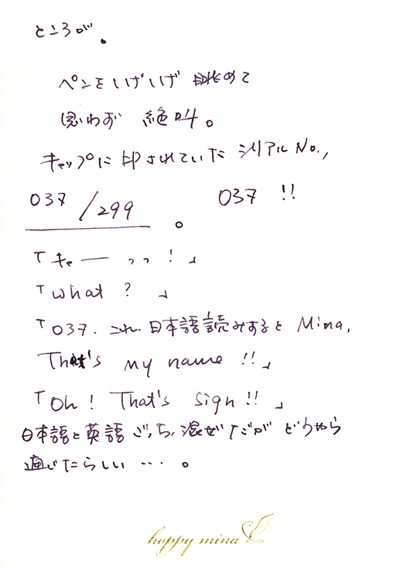 ところが。
ペンをしげしげ 眺めて
思わず 絶叫。
キャップに印されていた シリアルNo.,
037/299。 037 !!
「キャーーッッ!」
「What? 」
「037. これ、日本語読みすると Mina,
That's my name !!」
「Oh! That's sign!! 」
日本語と英語ごっちゃ混ぜだが どうやら
通じたらしい・・・。
happy mina